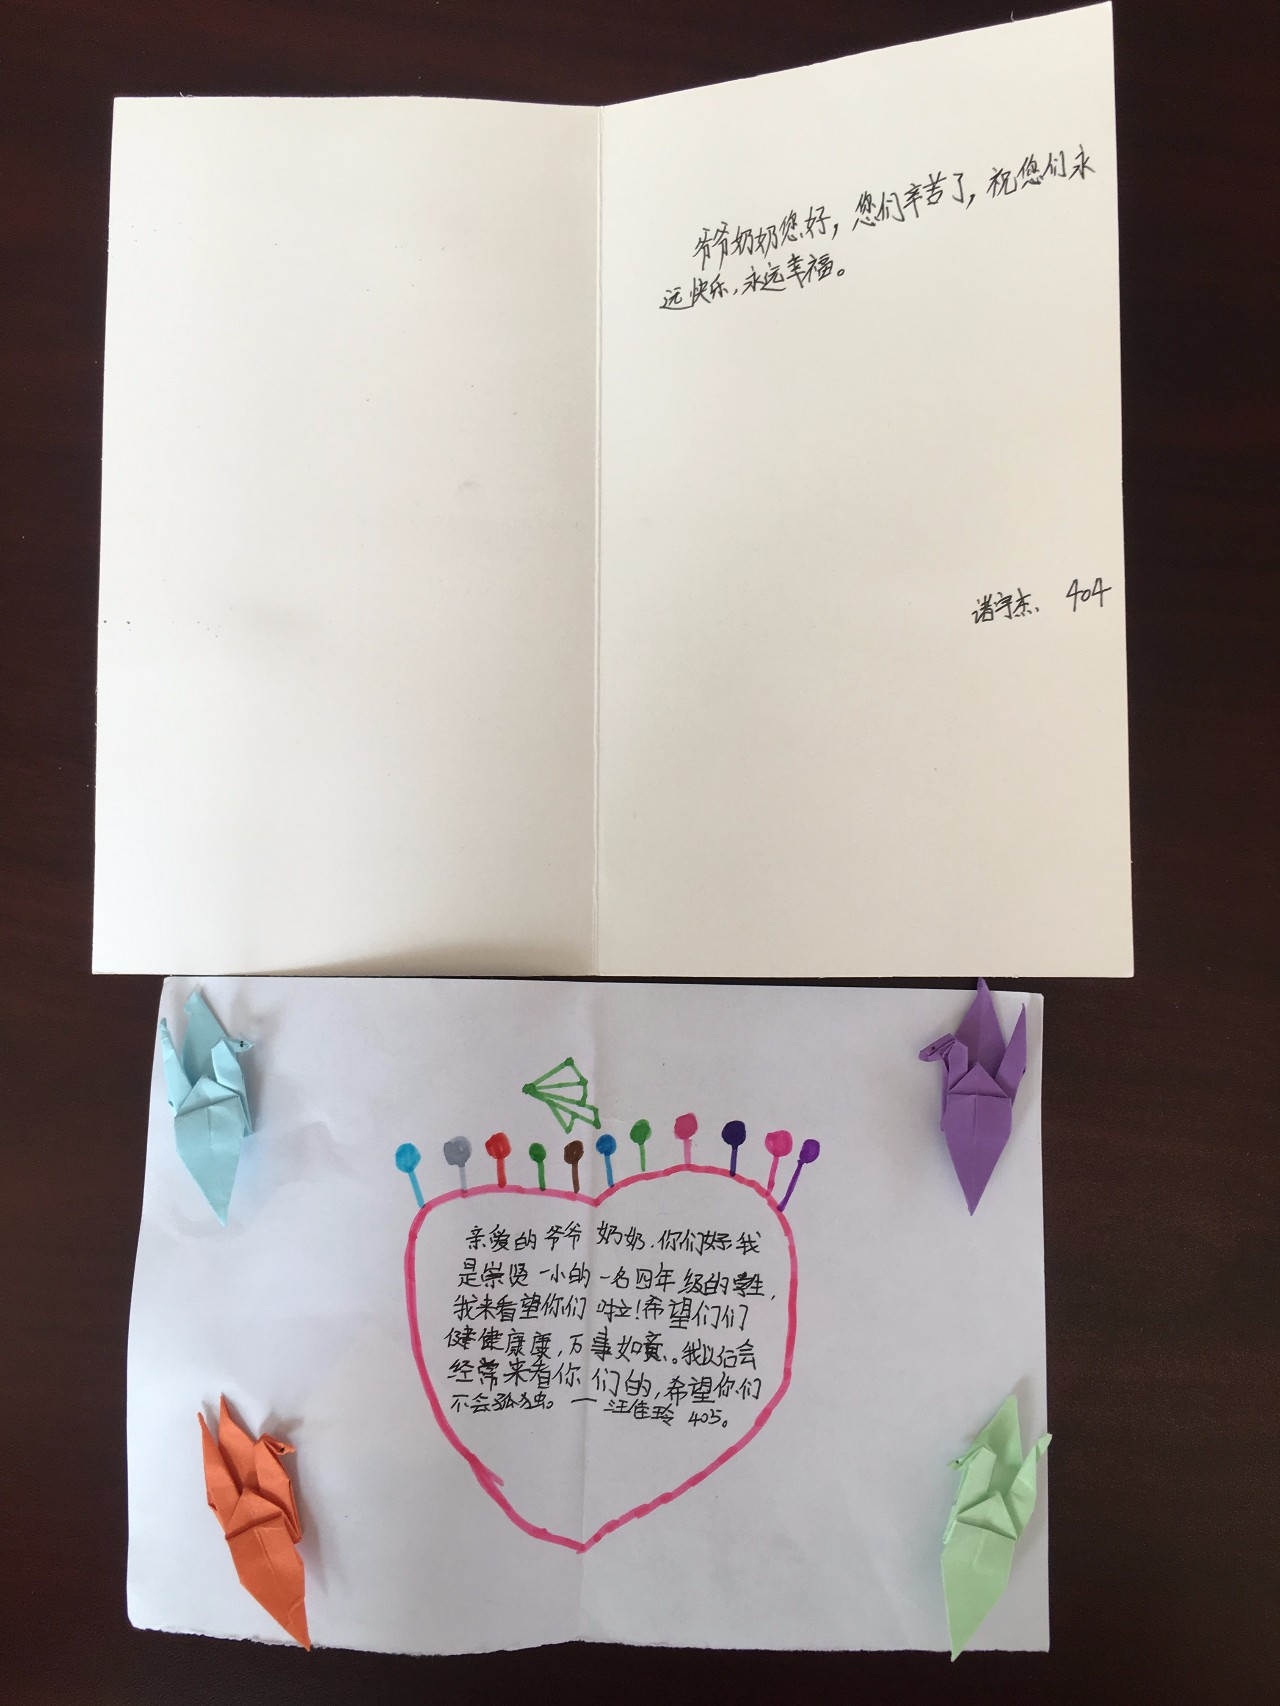 爷爷奶奶您好，您们辛苦了，祝您们永
远快乐，永远幸福。
诸宇杰 404
亲爱的爷爷奶奶，你们好我
是崇贤一小的一名四年级的学生，
我来看望你们啦！希望们们
健健康康，万事如意。我以后会
经常来看你们的，希望你们
不会孤独。——汪佳玲 405。